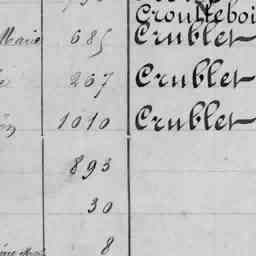 Croutteboi
Marie 685 Crublet
267 Crublet
1010 Crublet
893
30
8